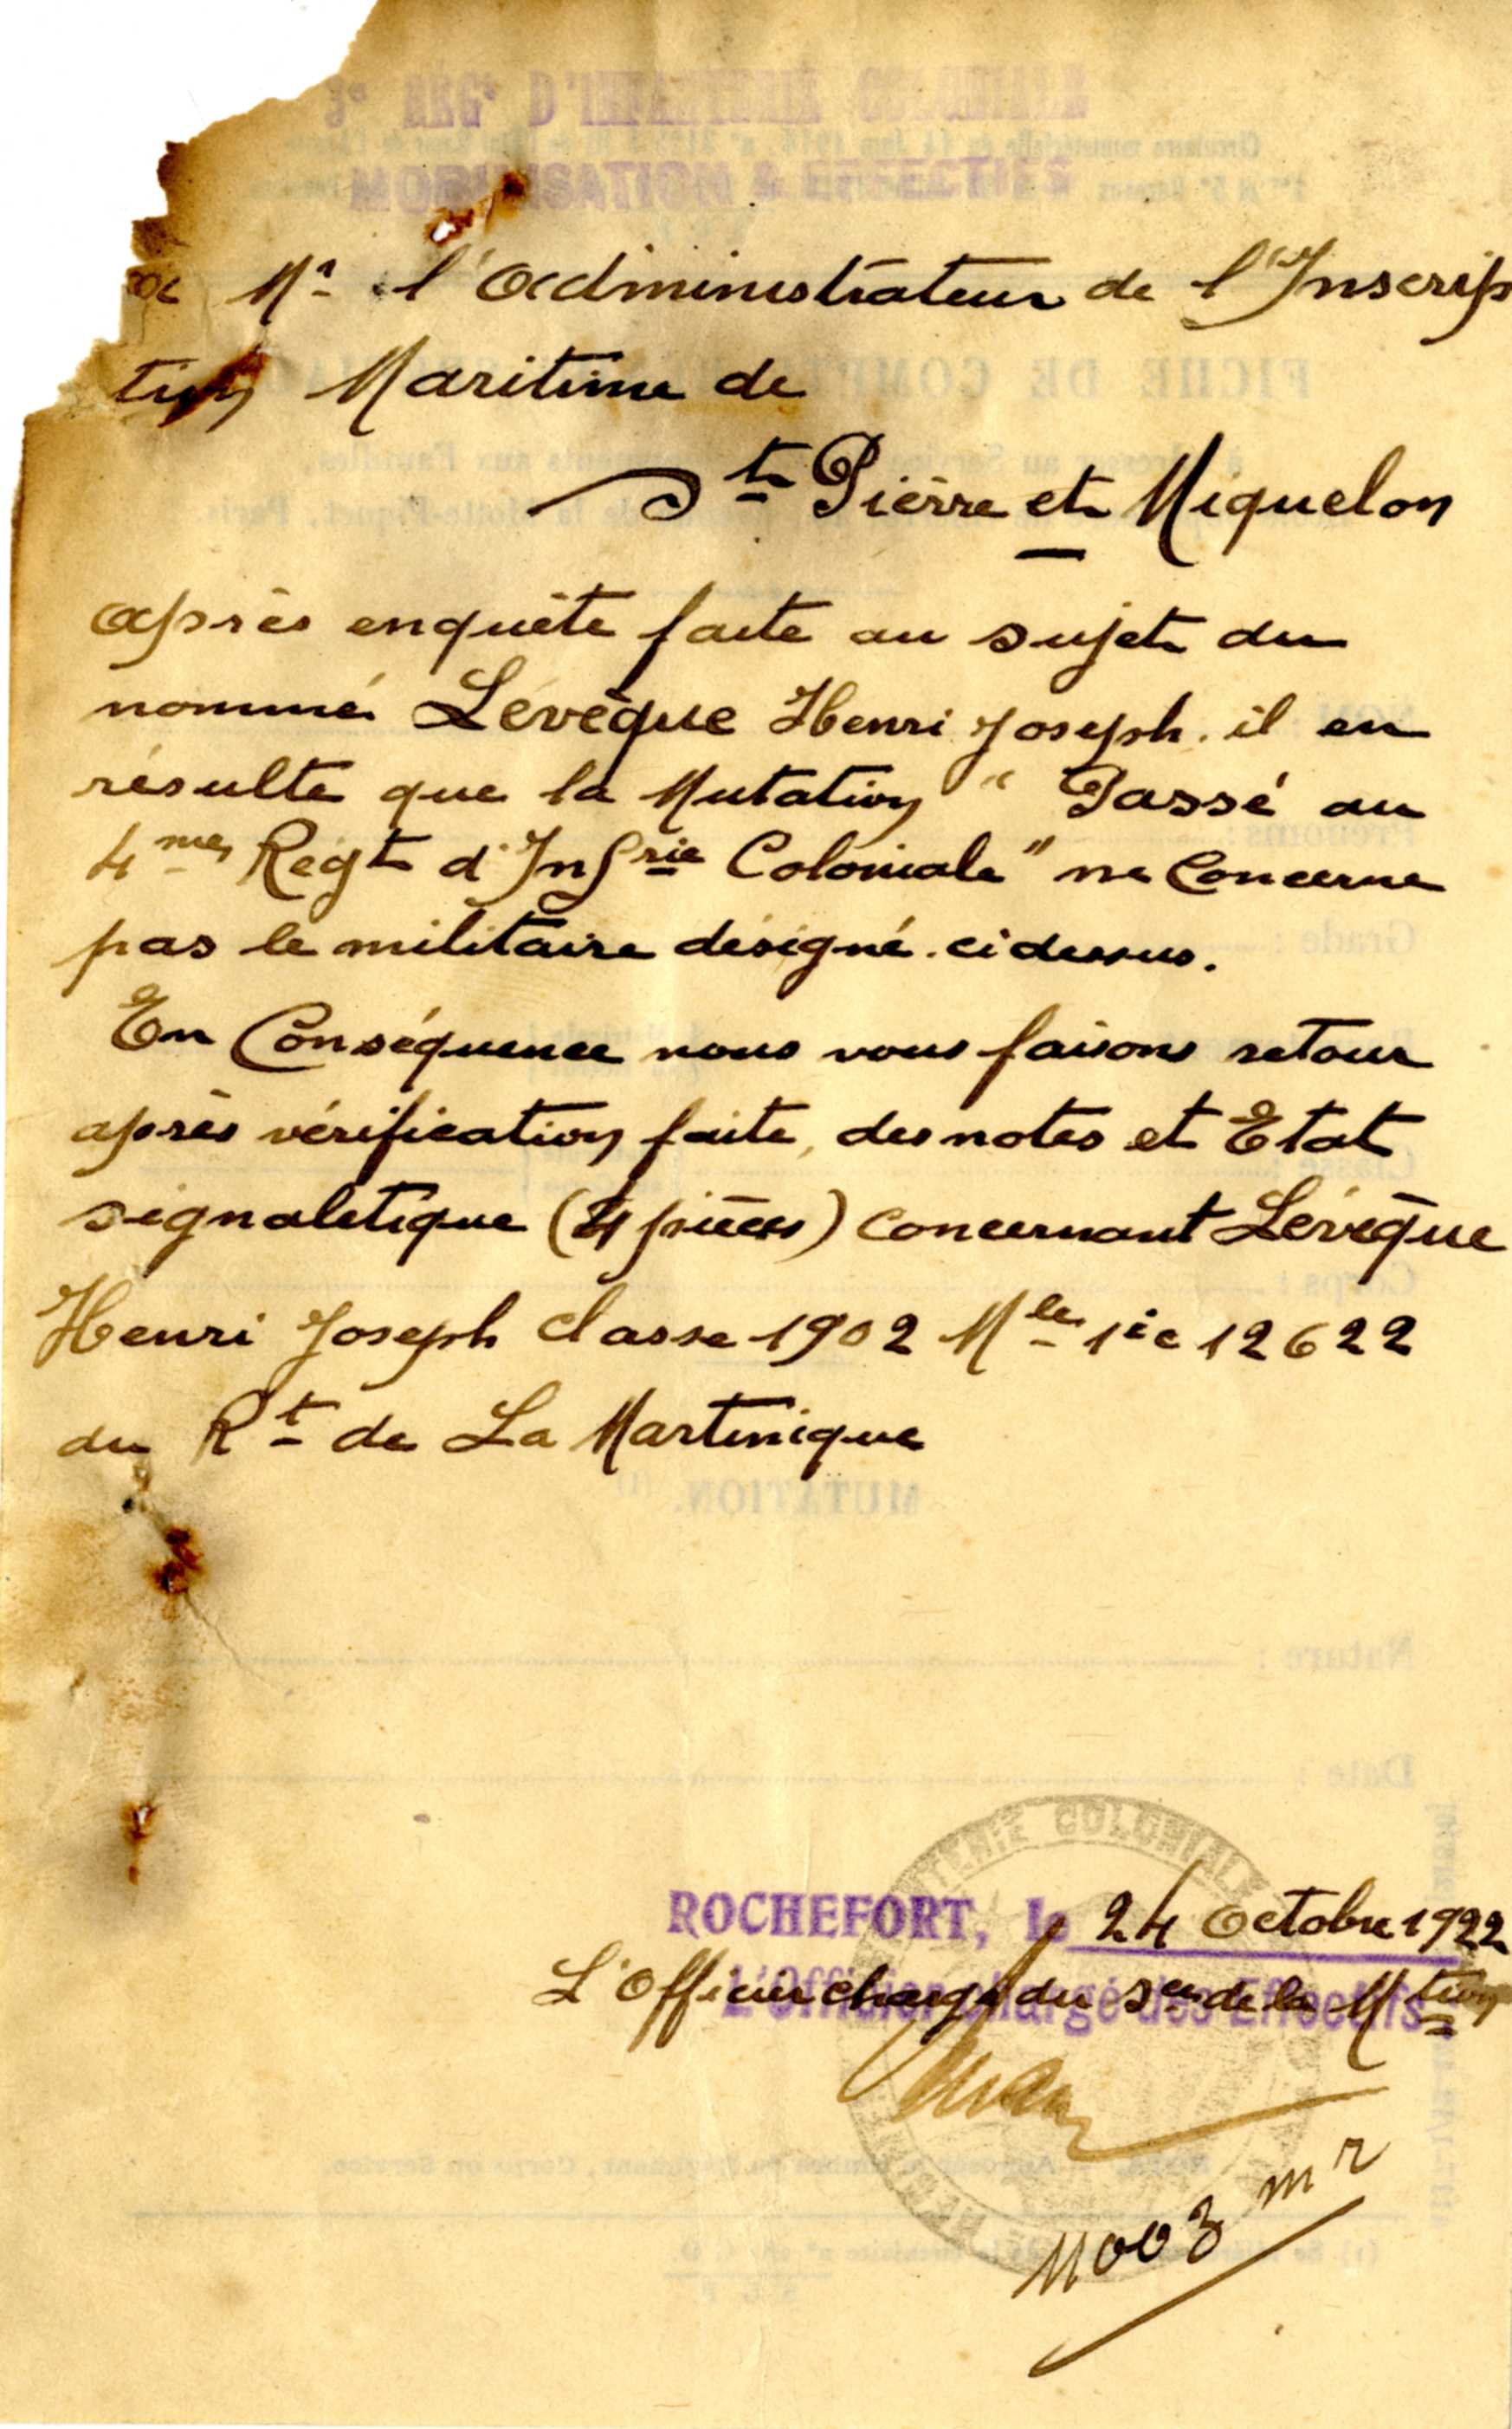 3e RÉGt D'INFANTERIE COLONIALE
MOBILISATION & EFFECTIFS
Mr l'Administrateur de l'Inscrip
tion Maritime de
St Pierre et Miquelon
après enquête faite au sujet du
nommé Lévêque Henri Joseph. il en
résulte que la Mutation "Passé au
4me Régt d'Infrie Coloniale" ne Concerne
pas le militaire désigné ci dessus.
En Conséquence nous vous faisons retour
après vérification faite, des notes et Etat
signalétique (4 pièces) concernant Lévêque
Henri Joseph classe 1902 Mle 1ie 12622
du Rt de La Martinique
MUTATION. (1)
Nature :
Date :
ROCHEFORT, le 24 octobre 1922
L'Officier chargé du sce de la Mtion
L'Officier chargé des Effectifs
11003 mr